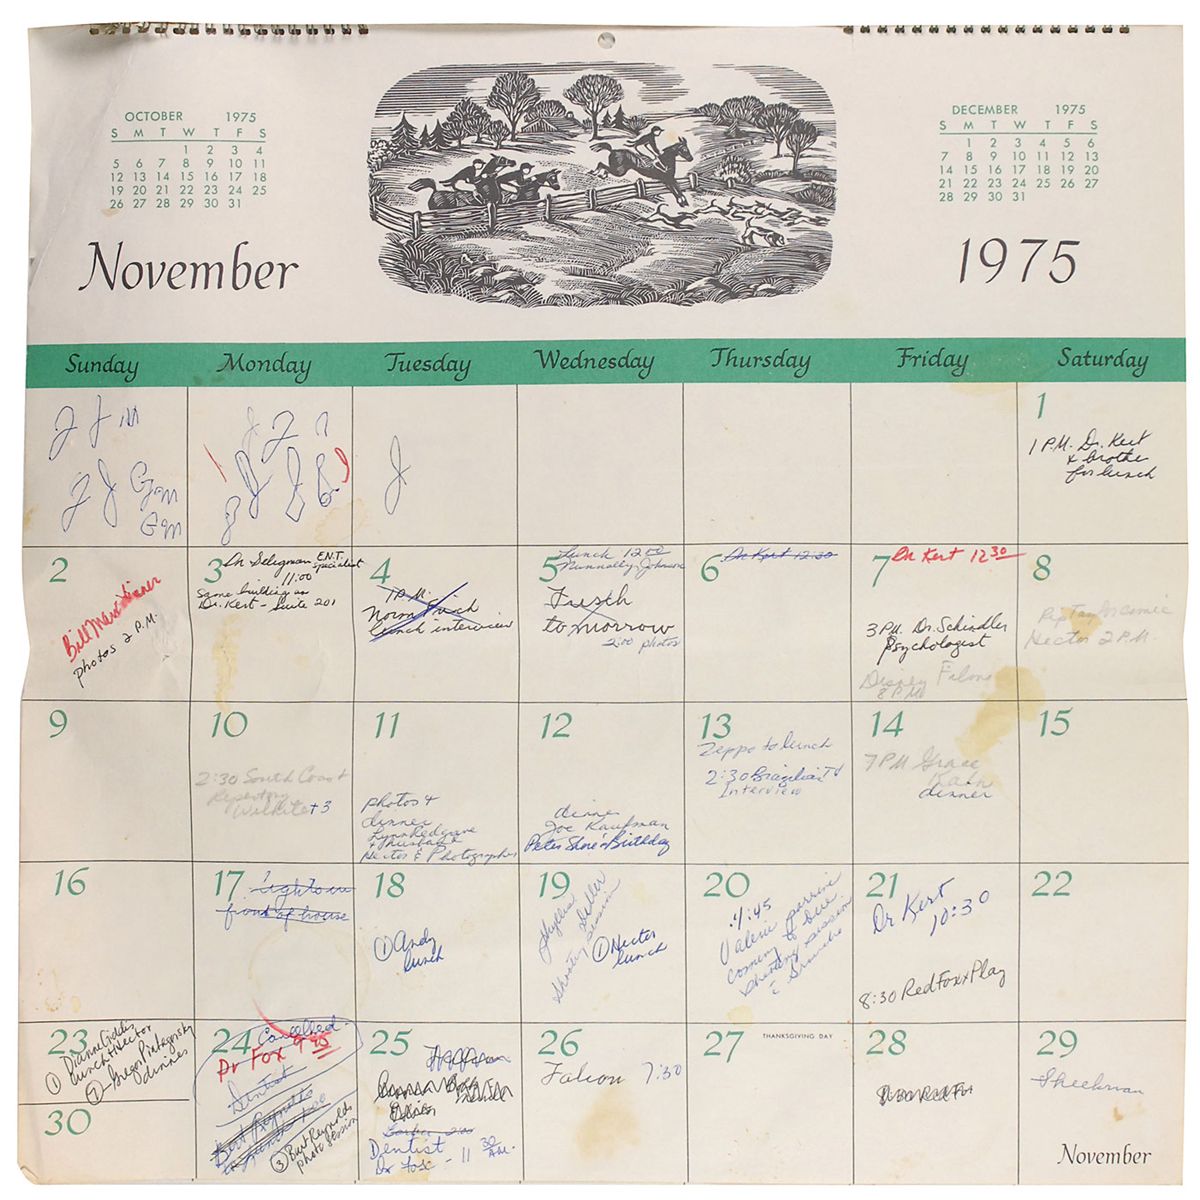 OCTOBER 1975
S M T W T F S
1 2 3 4
5 6 7 8 9 10 11
12 13 14 15 16 17 18
19 20 21 22 23 24 25
26 27 28 29 30 31
DECEMBER 1975
S M T W T F S
1 2 3 4 5 6
7 8 9 10 11 12 13
14 15 16 17 18 19 20
21 22 23 24 25 26 27
28 29 30 31
November
1975
Sunday Monday Tuesday Wednesday Thursday Friday Saturday
1
1 P.M. Dr. Kert
& brother
for lunch
2
Bill Marx dinner
photos 2 P.M.
3
Dr Seligman E.N.T.
specialist
11:00
same building as
Dr. Kert - Suite 201
4
1 P.M.
Norm
lunch interview
5
Lunch 12 00
Nunnally Johnson
tomorrow
2:00 photos
6
Dr Kert 12:30
7
Dr Kert 12 30
3 P.M. Dr. Schindler
Psychologist
Disney Films
8 P.M.
8
Hector 2 P.M.
9
10
2:30 South Coast
Repertory
+3
11
photos +
dinner
Lynn Redgrave
+ husband
Hector & Photographer
12
dinner
Joe Kaufman
Peter Shore's Birthday
13
Zeppo to lunch
2:30 Brazilian TV
Interview
14
7 PM Grace
Kahn
dinner
15
16
17
front of house
18
① Andy
lunch
19
Phyllis Diller
Shooting session
① Hector
lunch
20
4:45
Valerie perrine
coming
shooting session
21
Dr Kert
10:30
8:30 Red Foxx Play
22
23
① Dianne Giddis
lunch + Hector
⑦ - Gregor Piatigorsky
dinner
24
Cancelled
Dr Fox 9 45
Dentist
Burt Reynolds
③ Burt Reynolds
photo session
25
Barber 2:00
Dentist 11 30
A.M.
Dr Fox -
26
Falcon 7:30
27
THANKSGIVING DAY
28
29
Sheekman
30
November